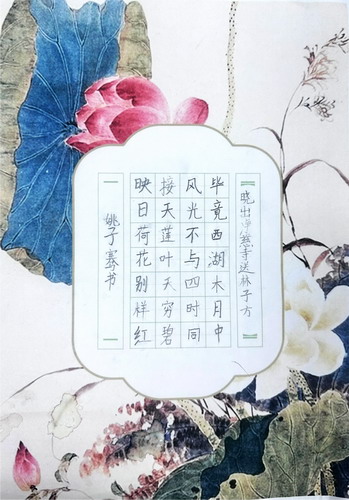 晓出净慈寺送林子方
毕竟西湖六月中
风光不与四时同
接天莲叶无穷碧
映日荷花别样红
姚子书